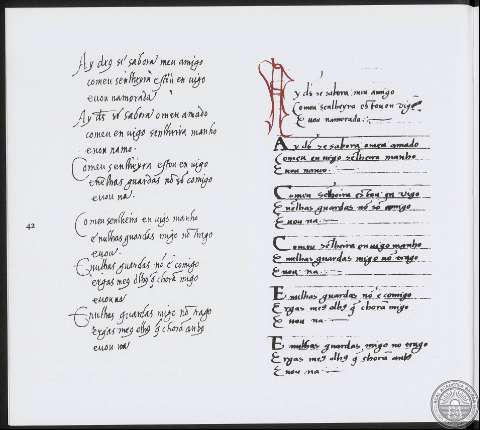 Ay deꝯ se sabora meu amigo
comeu senlheyra estou en uigo
euou namorada
Ay ds̃ se sabora o meu amado
comeu en uigo senlheira manho
euou namo
Comeu senlheyra estou en uigo
enelhas guardas nõ sõ comigo
euou na
Comeu senlheira en uigo manho
e nulhas guardas migo nõ trago
euou
Enulhas guardas nõ é comigo
ergas meꝯ olhꝯ q̃ chorã migo
euou na
Enulhas guardas migo nõ trago
ergas meꝯ olhꝯ q̃ chorã anbꝯ
euou na
42
Ay ds̃ se sabora meu amigo
Comeu senlheyra estou en vigo
E vou namorada
Ay ds̃ se sabora o meu amado
Comeu en uigo sẽlheira manho
E vou namo
Comeu sẽlheira estou en vigo
E nelhas guardas nõ sõ comigo
E uou na
Comeu sẽlheira en uigo manho
E nulhas guardas migo nõ trago
E uou na
E nulhas guardas nõ é comigo
Ergas meꝯ olhꝯ q̃ chorã migo
E uou na
E nulhas guardas migo no trago
Ergas meꝯ olhꝯ q̃ chorã anbꝯ
E uou na